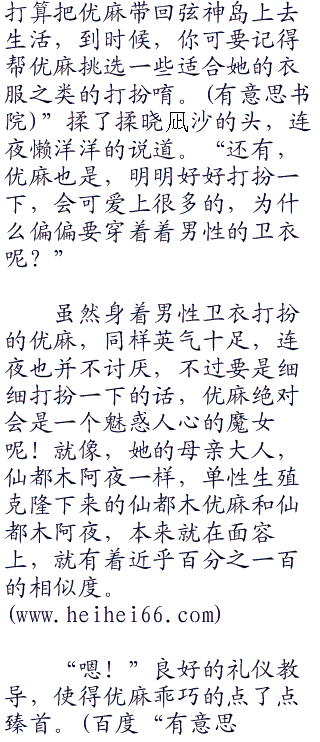 打算把优麻带回弦神岛上去
生活，到时候，你可要记得
帮优麻挑选一些适合她的衣
服之类的打扮唷。(有意思书
院)”揉了揉晓凪沙的头，连
夜懒洋洋的说道。“还有，
优麻也是，明明好好打扮一
下，会可爱上很多的，为什
么偏偏要穿着着男性的卫衣
呢？”
虽然身着男性卫衣打扮
的优麻，同样英气十足，连
夜也并不讨厌，不过要是细
细打扮一下的话，优麻绝对
会是一个魅惑人心的魔女
呢！就像，她的母亲大人，
仙都木阿夜一样，单性生殖
克隆下来的仙都木优麻和仙
都木阿夜，本来就在面容
上，就有着近乎百分之一百
的相似度。
(www.heihei66.com)
“嗯！”良好的礼仪教
导，使得优麻乖巧的点了点
臻首。(百度“有意思